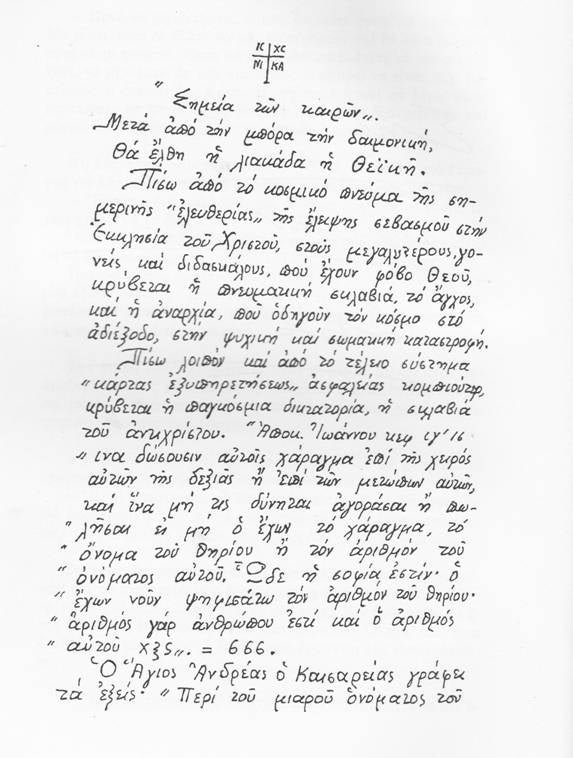 ΙC ΧC
ΝΙ ΚΑ
"Σημεία τῶν καιρῶν„.
Μετά ἀπό τήν μπόρα τήν δαιμονική,
Θά ἔλθῃ ἡ λιακάδα ἡ Θεϊκή.
Πίσω ἀπό τό κοσμικό πνεύμα τῆς ση-
μερινῆς "ἐλευθερίας„ τῆς ἔλειψης σεβασμοῦ στήν
Ἐκκλησία τοῦ Χριστοῦ, στούς μεγαλυτέρους, γο-
νεῖς καί διδασκάλους, πού ἔχουν φόβο Θεοῦ,
κρύβεται ἡ πνευματική σκλαβιά, τό ἄγχος,
καί ἡ ἀναρχία, πού ὁδηγοῦν τόν κόσμο στό
ἀδιέξοδο, στήν ψυχική καί σωματική καταστροφή.
Πίσω λοιπόν καί ἀπό τό τέλειο σύστημα
"κάρτας ἐξυπηρετήσεως„ ἀσφαλείας κομπιοῦτερ,
κρύβεται ἡ παγκόσμια δικτατορία, ἡ σκλαβιά
τοῦ ἀντιχρίστου. "Ἀποκ. Ἰωάννου κεφ ιγ' 16
"ινα δώσουσιν αὐτοῖς χάραγμα ἐπί τῆς χειρός
αὐτῶν τῆς δεξιᾶς ἤ ἐπί τῶν μετώπων αὐτῶν,
καί ἵνα μή τις δύνηται ἀγοράσαι ἤ πω-
"λῆσαι εἰ μή ὁ ἔχων τό χάραγμα, τό
"ὄνομα τοῦ θηρίου ἤ τόν ἀριθμόν τοῦ
"ὀνόματος αὐτοῦ. Ὧδε ἡ σοφία ἐστίν· ὁ
"ἔχων νοῦν ψηφισάτω τόν ἀριθμόν τοῦ θηρίου·
"ἀριθμός γάρ ἀνθρώπου ἐστί καί ὁ ἀριθμός
"αὐτοῦ χξς„. = 666.
Ὁ Ἅγιος Ἀνδρέας ὁ Καισαρείας γράφει
τά ἑξεῖς· "Περί τοῦ μιαροῦ ὀνόματος τοῦ